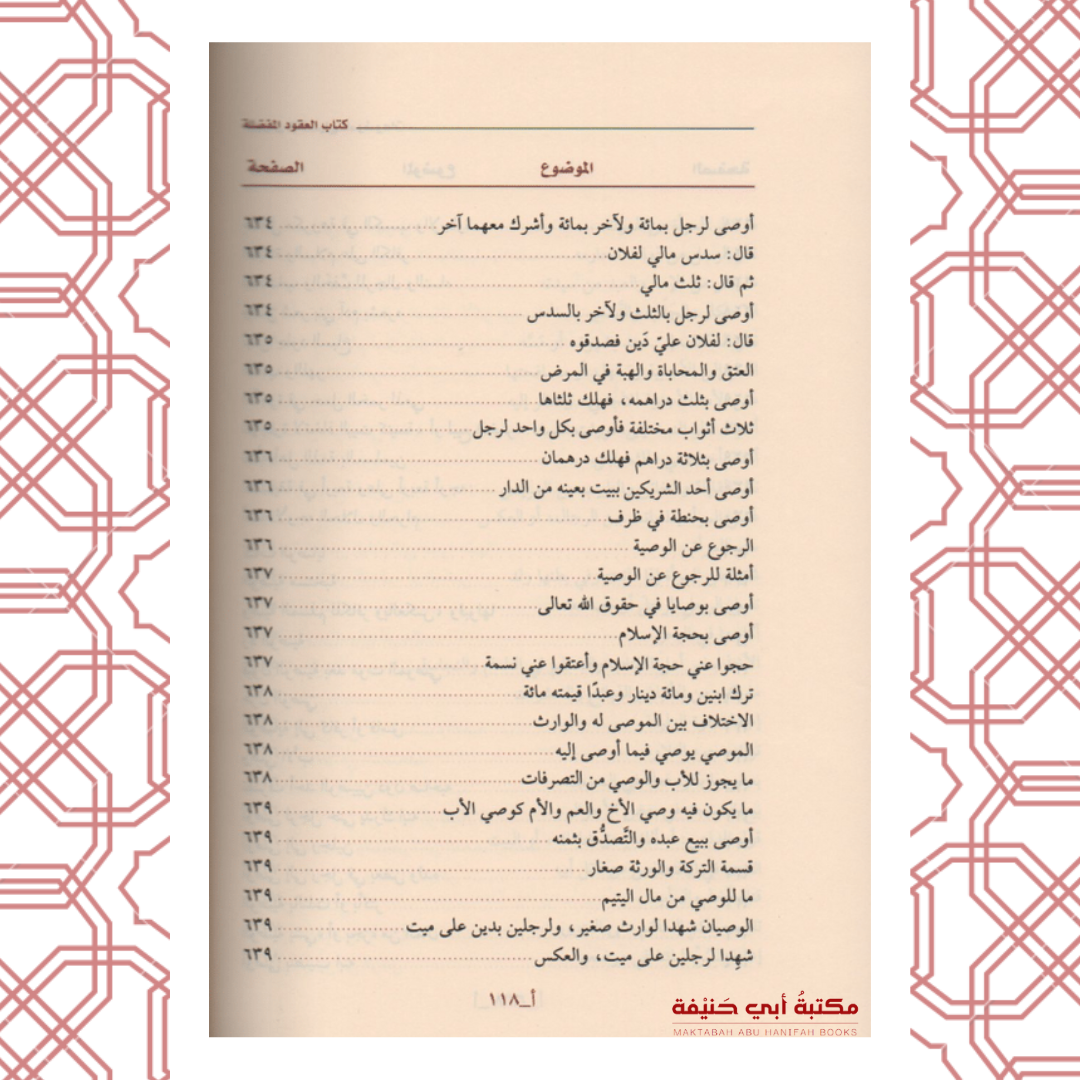 كتاب العقود المفصلة
الموضوع الصفحة
أوصى لرجل بمائة ولآخر بمائة وأشرك معهما آخر ٦٣٤
قال: سدس مالي لفلان ٦٣٤
ثم قال: ثلث مالي ٦٣٤
أوصى لرجل بالثلث ولآخر بالسدس ٦٣٤
قال: لفلان عليّ دَين فصدقوه ٦٣٥
العتق والمحاباة والهبة في المرض ٦٣٥
أوصى بثلث دراهمه، فهلك ثلثاها ٦٣٥
ثلاث أثواب مختلفة فأوصى بكل واحد لرجل ٦٣٥
أوصى بثلاثة دراهم فهلك درهمان ٦٣٦
أوصى أحد الشريكين ببيت بعينه من الدار ٦٣٦
أوصى بحنطة في ظرف ٦٣٦
الرجوع عن الوصية ٦٣٦
أمثلة للرجوع عن الوصية ٦٣٧
أوصى بوصايا في حقوق الله تعالى ٦٣٧
أوصى بحجة الإسلام ٦٣٧
حجوا عني حجة الإسلام وأعتقوا عني نسمة ٦٣٧
ترك ابنين ومائة دينار وعبدًا قيمته مائة ٦٣٨
الاختلاف بين الموصى له والوارث ٦٣٨
الموصي يوصي فيما أوصى إليه ٦٣٨
ما يجوز للأب والوصي من التصرفات ٦٣٨
ما يكون فيه وصي الأخ والعم والأم كوصي الأب ٦٣٩
أوصى ببيع عبده والتَّصدُّق بثمنه ٦٣٩
قسمة التركة والورثة صغار ٦٣٩
ما للوصي من مال اليتيم ٦٣٩
الوصيان شهدا لوارث صغير، ولرجلين بدين على ميت ٦٣٩
شهِدا لرجلين على ميت، والعكس ٦٣٩
أ_١١٨
مكتبةُ أبي حَنيْفة
MAKTABAH ABU HANIFAH BOOKS